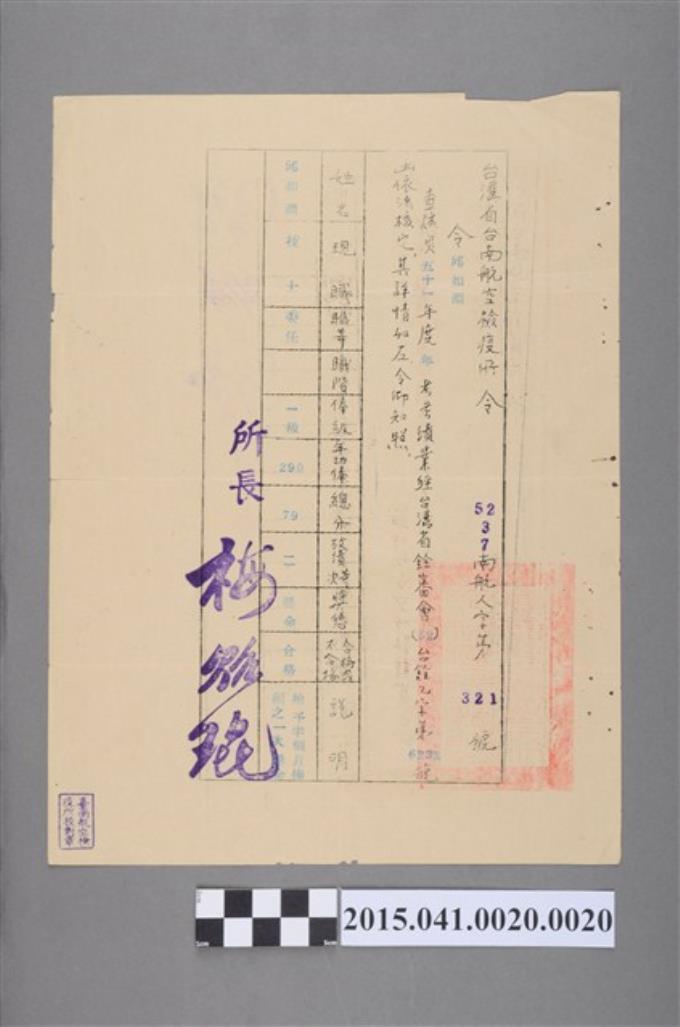 台灣省台南航空檢疫所 令
52 3 7 南航人字第 321 號
令 邱如淵
查該員五十一年度年考考績業經台灣省銓審會(52)台銓九字第
號
依法核定,其詳情如左令仰知照
姓名 現職 職等 職階 俸級 年功俸 總分 考績等次 獎懲 合格或不合格 說明
邱如淵 技士 委任 一級 290 79 二 合格
給予半個月俸
之一次獎金
所長 梅
2015.041.0020.0020